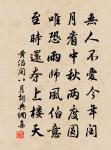 無人不愛今年閏
月看中秋兩度圓
唯恐雨師風伯意
至時還奪上樓天
黃滔閏八月詩 佣書